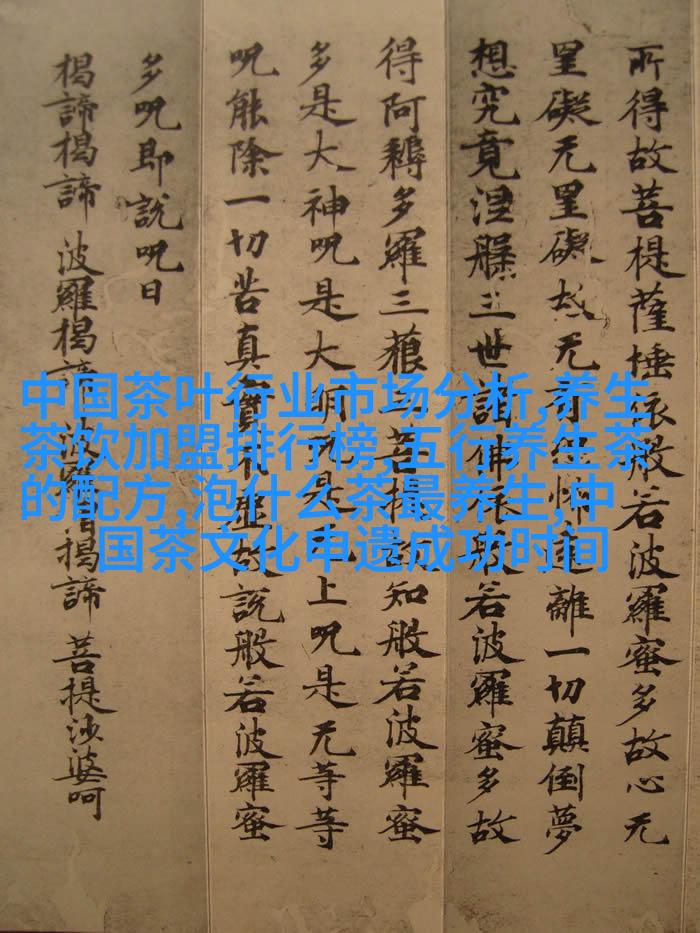 所得故菩提薩埵依般若波羅蜜多故心无
罣礙无罣礙故无有恐怖遠離一切顛倒夢
想究竟涅槃三世諸佛依般若波羅蜜多故
得阿耨多羅三藐三菩提故知般若波羅蜜
多是大神呪是大明呪是无上呪是无等等
呪能除一切苦真實不虛故說般若波羅蜜
多呪即說呪曰
揭諦揭諦 波羅揭諦 波羅僧揭諦 菩提沙婆呵
中国茶叶行业市场分析,养生
茶饮加盟排行榜,五行养生茶
的配方,泡什么茶最养生,中
国茶文化申遗成功时间